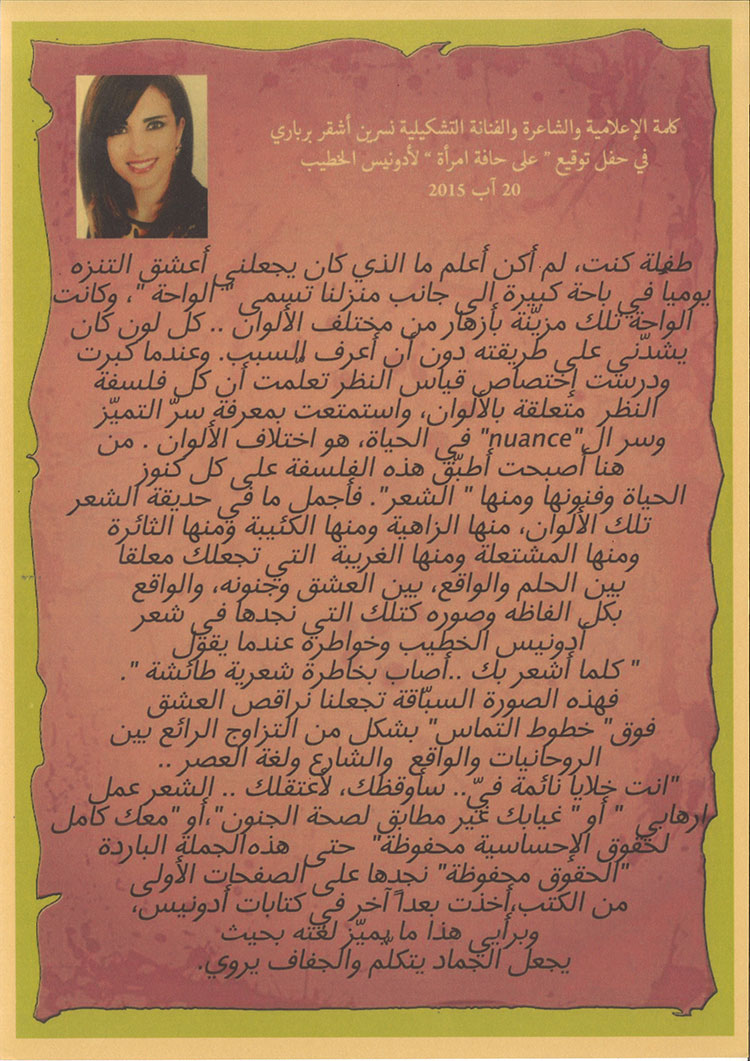 كلمة الإعلامية والشاعرة والفنانة التشكيلية نسرين أشقر برباري
في حفل توقيع " على حافة امرأة " لأدونيس الخطيب
20 آب 2015
طفلة كنت، لم أكن أعلم ما الذي كان يجعلني أعشق التنزه
يومياً في باحة كبيرة الى جانب منزلنا تسمى " الواحة "، وكانت
الواحة تلك مزيّنة بأزهار من مختلف الألوان .. كل لون كان
يشدّني على طريقته دون أن أعرف السبب. وعندما كبرت
ودرست إختصاص قياس النظر تعلّمت أن كل فلسفة
النظر متعلقة بالألوان، واستمتعت بمعرفة سرّ التميّز
وسر ال"nuance" في الحياة، هو اختلاف الألوان . من
هنا أصبحت أطبّق هذه الفلسفة على كل كنوز
الحياة وفنونها ومنها " الشعر". فأجمل ما في حديقة الشعر
تلك الألوان، منها الزاهية ومنها الكئيبة ومنها الثائرة
ومنها المشتعلة ومنها الغريبة التي تجعلك معلقا
بين الحلم والواقع، بين العشق وجنونه، والواقع
بكل الفاظه وصوره كتلك التي نجدها في شعر
أدونيس الخطيب وخواطره عندما يقول
" كلما أشعر بك ..أصاب بخاطرة شعرية طائشة ".
فهذه الصورة السبّاقة تجعلنا نراقص العشق
فوق" خطوط التماس" بشكل من التزاوج الرائع بين
الروحانيات والواقع والشارع ولغة العصر ..
"انت خلايا نائمة فيّ.. سأوقظك، لأعتقلك .. الشعر عمل
ارهابي " أو " غيابك غير مطابق لصحة الجنون"،أو "معك كامل
لحقوق الإحساسية محفوظة" حتى هذه الجملة الباردة
"الحقوق محفوظة" نجدها على الصفحات الأولى
من الكتب،أخذت بعداً آخر في كتابات أدونيس،
وبرأيي هذا ما يميّز لغته بحيث
يجعل الجماد يتكلّم والجفاف يروي.